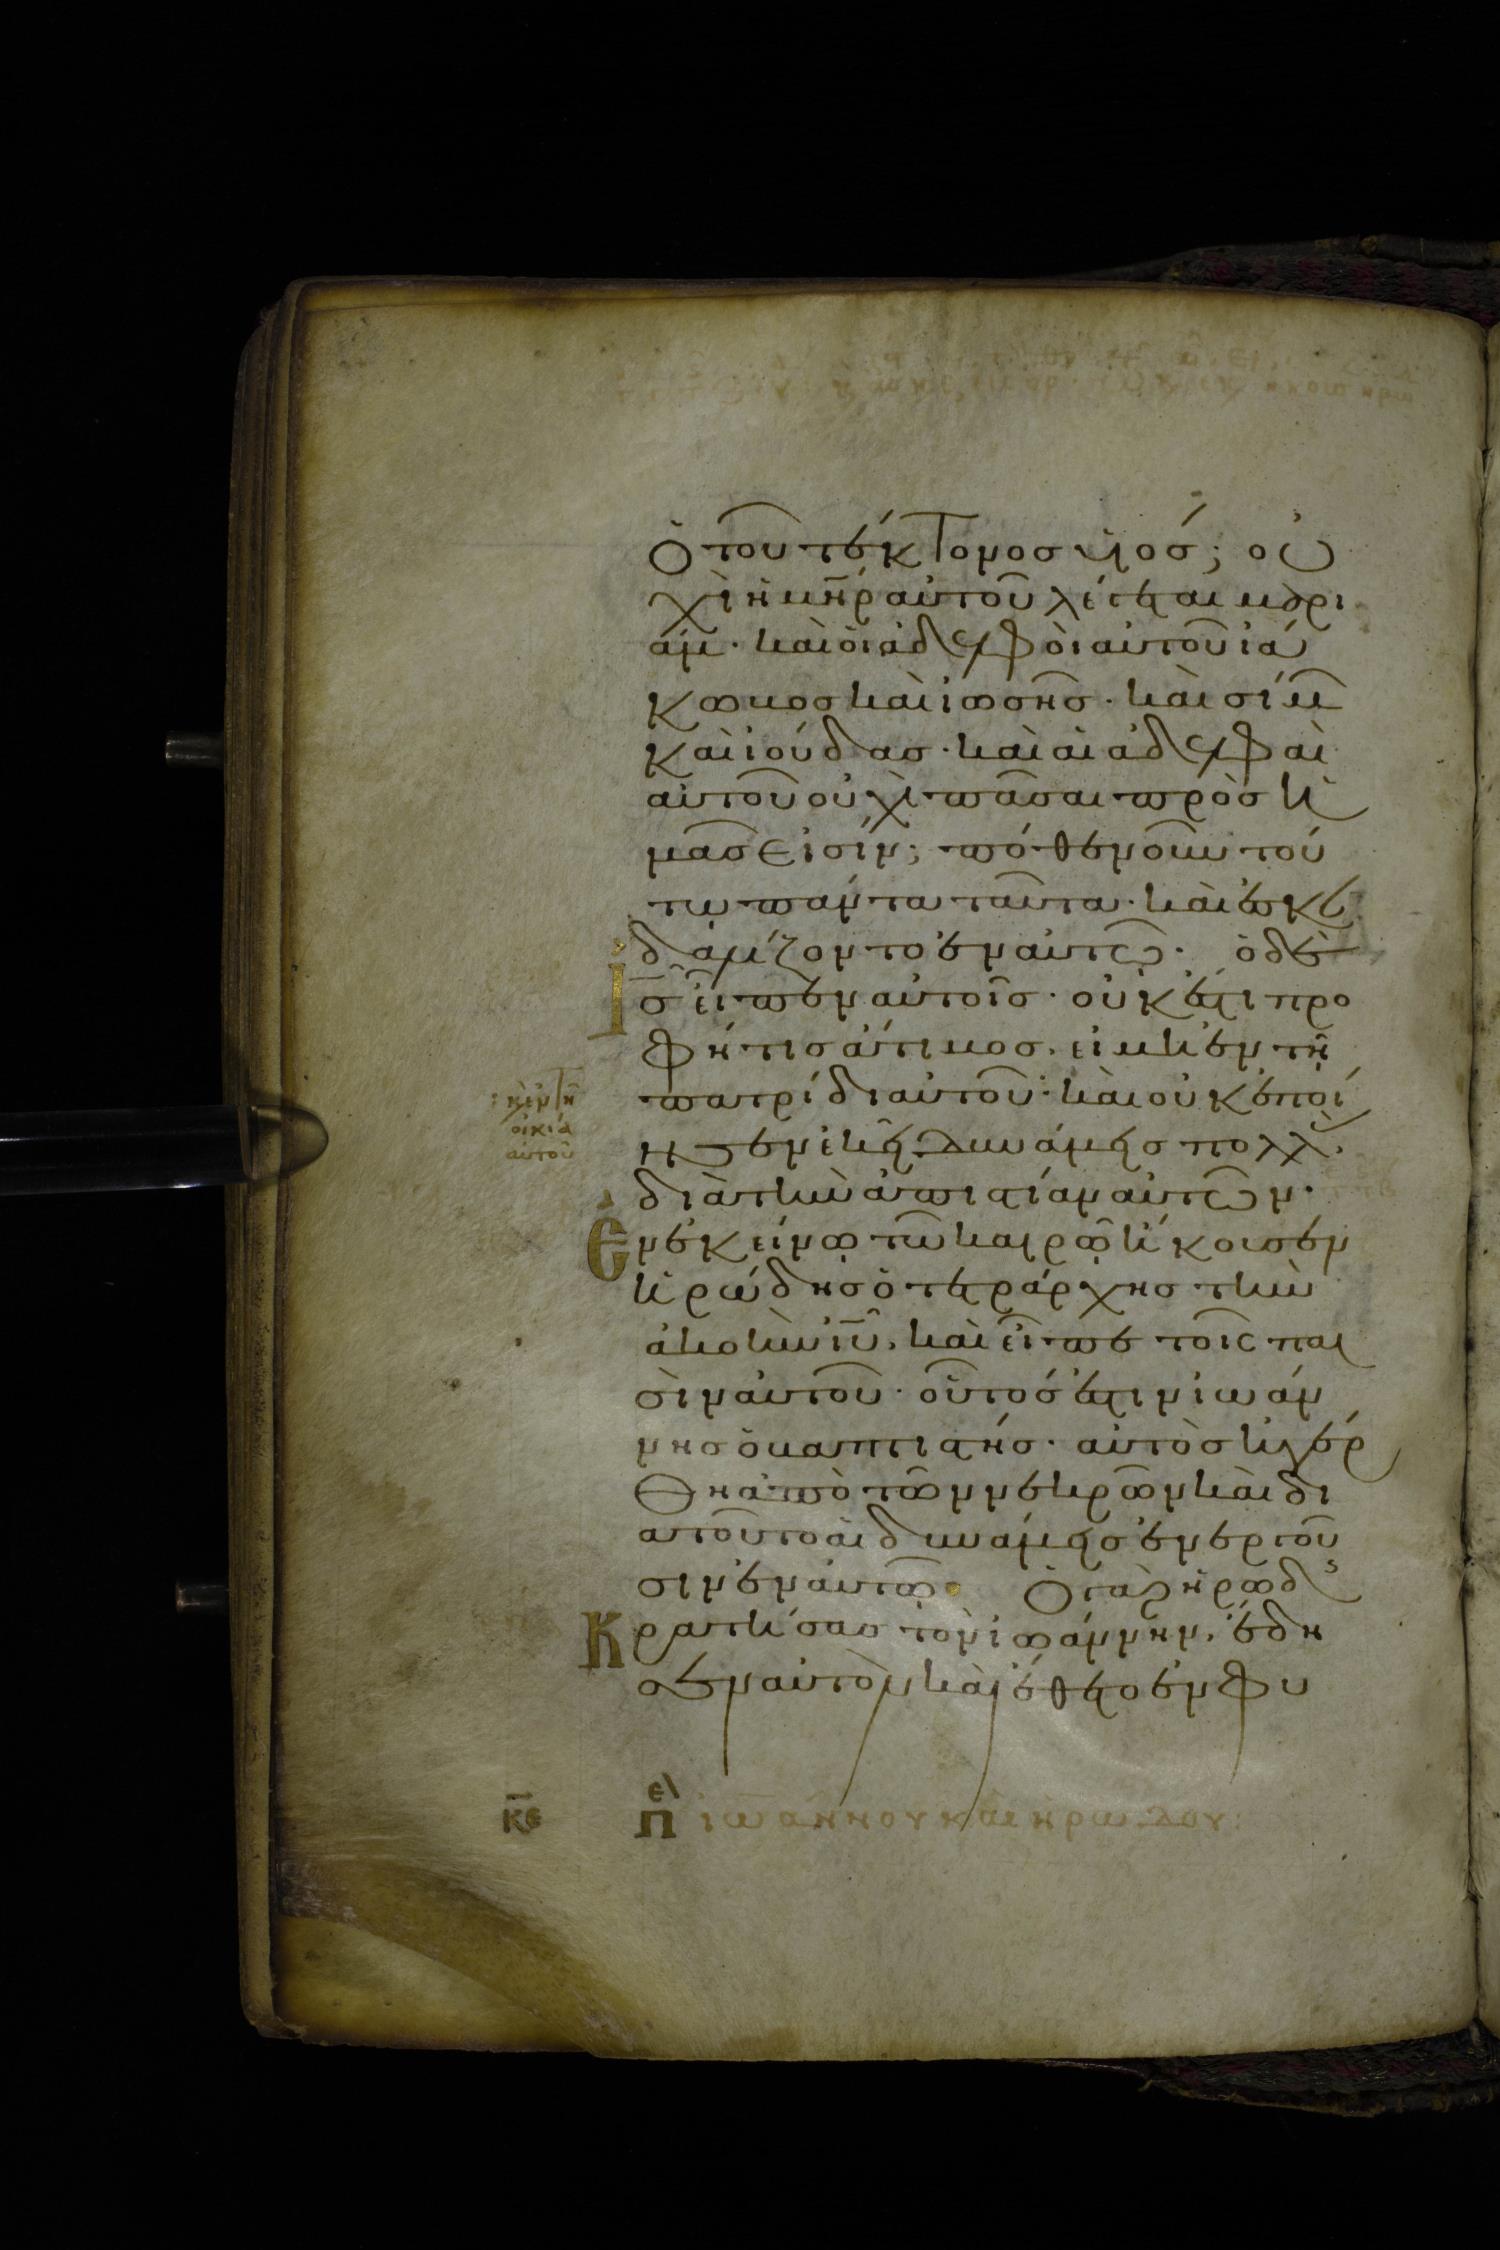 ὁ τοῦ τέκτονος υἱός; οὐ
χὶ ἡ μηρ αὐτοῦ λέγεται μαρι
άμ· καὶ οἱ ἀδελφοὶ αὐτοῦ ἰά
κωβος καὶ ἰωσῆς· καὶ σίμ
καὶ ἰούδας· καὶ αἱ ἀδελφαὶ
αὐτοῦ οὐχὶ πᾶσαι πρὸς ἡ
μᾶς εἰσίν; πόθεν οὖν τού
τω πάντα ταῦτα· καὶ ἐσκα
δαλίζοντο ἐν αὐτῶ· ὁ δὲ
ις εἶπεν αὐτοῖς· οὐκ ἔστι προ
φήτης ἄτιμος, εἰ μὴ ἐν τῆ
πατρίδι αὐτοῦ· καὶ οὐκ ἐποί
:καὶ ἐν τῆ
οἰκία
αὐτοῦ
ησεν ἐκεῖ δυνάμεις πολλὰς
διὰ τὴν ἀπιστίαν αὐτῶν·
Ἐν ἐκείνω τῶ καιρῶ ἤκουσεν
ἡρώδης ὁ τετράρχης τὴν
ἀκοὴν ιυ, καὶ εἶπε τοῖς παι
σὶν αὐτοῦ· οὗτός ἐστιν ἰωάν
νης ὁ βαπτιστής· αὐτὸς ἠγέρ
θη ἀπὸ τῶν νεκρῶν καὶ δι
α τοῦτο αἱ δυνάμεις ἐνεργοῦ
σιν ἐν αὐτῶ· Ὁ γὰρ ἡρώδ
Κρατήσας τὸν ἰωάννην, ἔδη
σεν αὐτὸν καὶ ἔθετο ἐν φυ
κε πε ἰωάννου καὶ ἡρώδου: